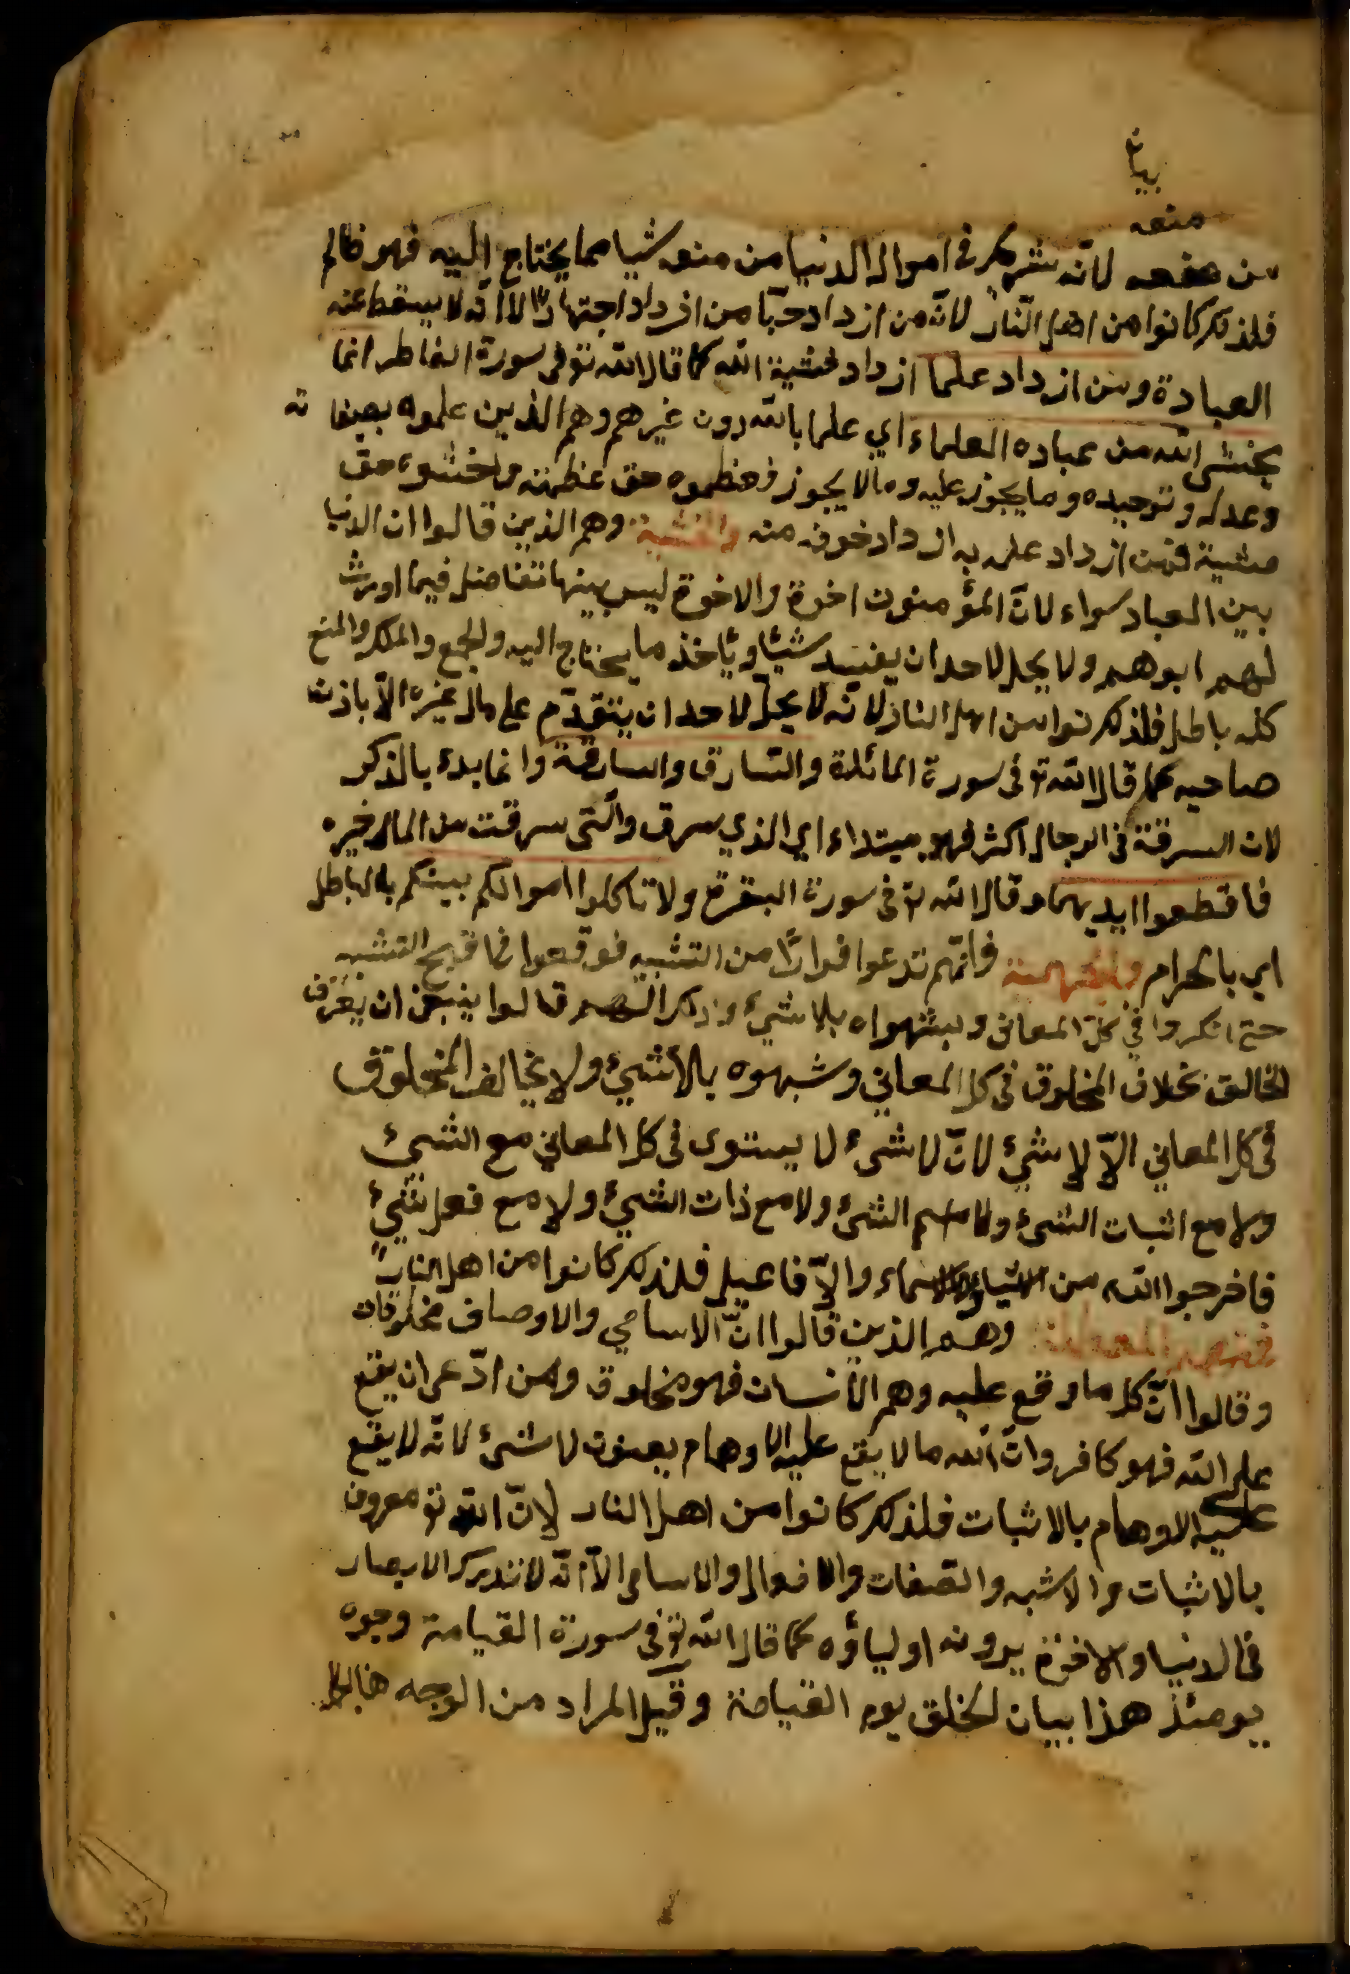 بيان
منعه
من منعه لانه شريكر في اموال الدنيا من منعه شيا مما يحتاج اليه فهو ظالم
فلذلك كانوا من اهل النار لانّه من ازداد حبّا من ازداد اجتهادًا الا انّه لا يسقط عنه
العبادة ومن ازداد علما ازداد لخشية الله كما قال الله تع في سورة الفاطر انما
يخشى الله من عباده العلماء اي علما بالله دون غيرهم وهم الذين علموه بصفاته
وعدله وتوحيده وما يجوز عليه وما لا يجوز فعظموه حق عظمته وخشوه حق
خشية فمن ازداد علم به ازداد خوفه منه وهم الذين قالوا ان الدنيا
بين العباد سواء لانّ المؤمنون اخوة والاخوة ليس بينها تفاضل فيما اورث
لهم ابوهم ولا يحل لاحد ان يفسد شيئا ويأخذ ما يحتاج اليه والجمع والملك والمنع
كله باطل فلذلك كانوا من اهل النار لانّه لا يحلّ لاحد ان يتقدّم على مال غيره الّا باذن
صاحبه كما قال الله تع في سورة المائدة والسّارق والسارقة وانما بدء بالذكر
لان السرقة في الرجال اكثر فهو مبتداء اي الذي سرق والّتي سرقت من المال خبره
فاقطعوا ايديهما وقال الله تع في سورة البقرة ولا تاكلوا اموالكم بينكم بالباطل
اي بالحرام والجهمية فانّهم تدعوا فرارًا من التشبيه فوقعوا في اقبح التشبيه
حتى انكروا في كلّ المعاني ويشبهواه بلا شيء وذكر انهم قالوا ينبغى ان يعرّف
الخالق بخلاف المخلوق في كل المعاني وشبهوه بالاشيء ولا يخالف المخلوق
في كل المعاني الّا لا شيء لانّ لا شيء لا يستوى في كل المعاني مع الشيء
ولا مع اثبات الشيء ولا اسم الشيء ولا مع ذات الشيء ولا مع فعل شيءٍ
فاخرجوا الله من الاشياء والاسماء والّا فاعيل فلذلك كانوا من اهل النار
وهم الذين قالوا انّ الاسامي والاوصاف مخلوقات
وقالوا انّ كل ما وقع عليه وهم الانسان فهو مخلوق ومن ادّعى ان يقع
على الله فهو كافر وانّ الله ما لا يقع عليه الاوهام يعنون لا شيء لانّه لا يقع
عليه الاوهام بالاثبات فلذلك كانوا من اهل النار لانّ الله تع معروف
بالاثبات والاشبه والصفات والافعال والاسامي الّا انّه لا تدركر الابصار
في الدنيا والاخرة يرونه اولياؤه كما قال الله تع في سورة القيامة وجوه
يومئذ هذا بيان لخلق يوم القيامة وقيل المراد من الوجه هنا